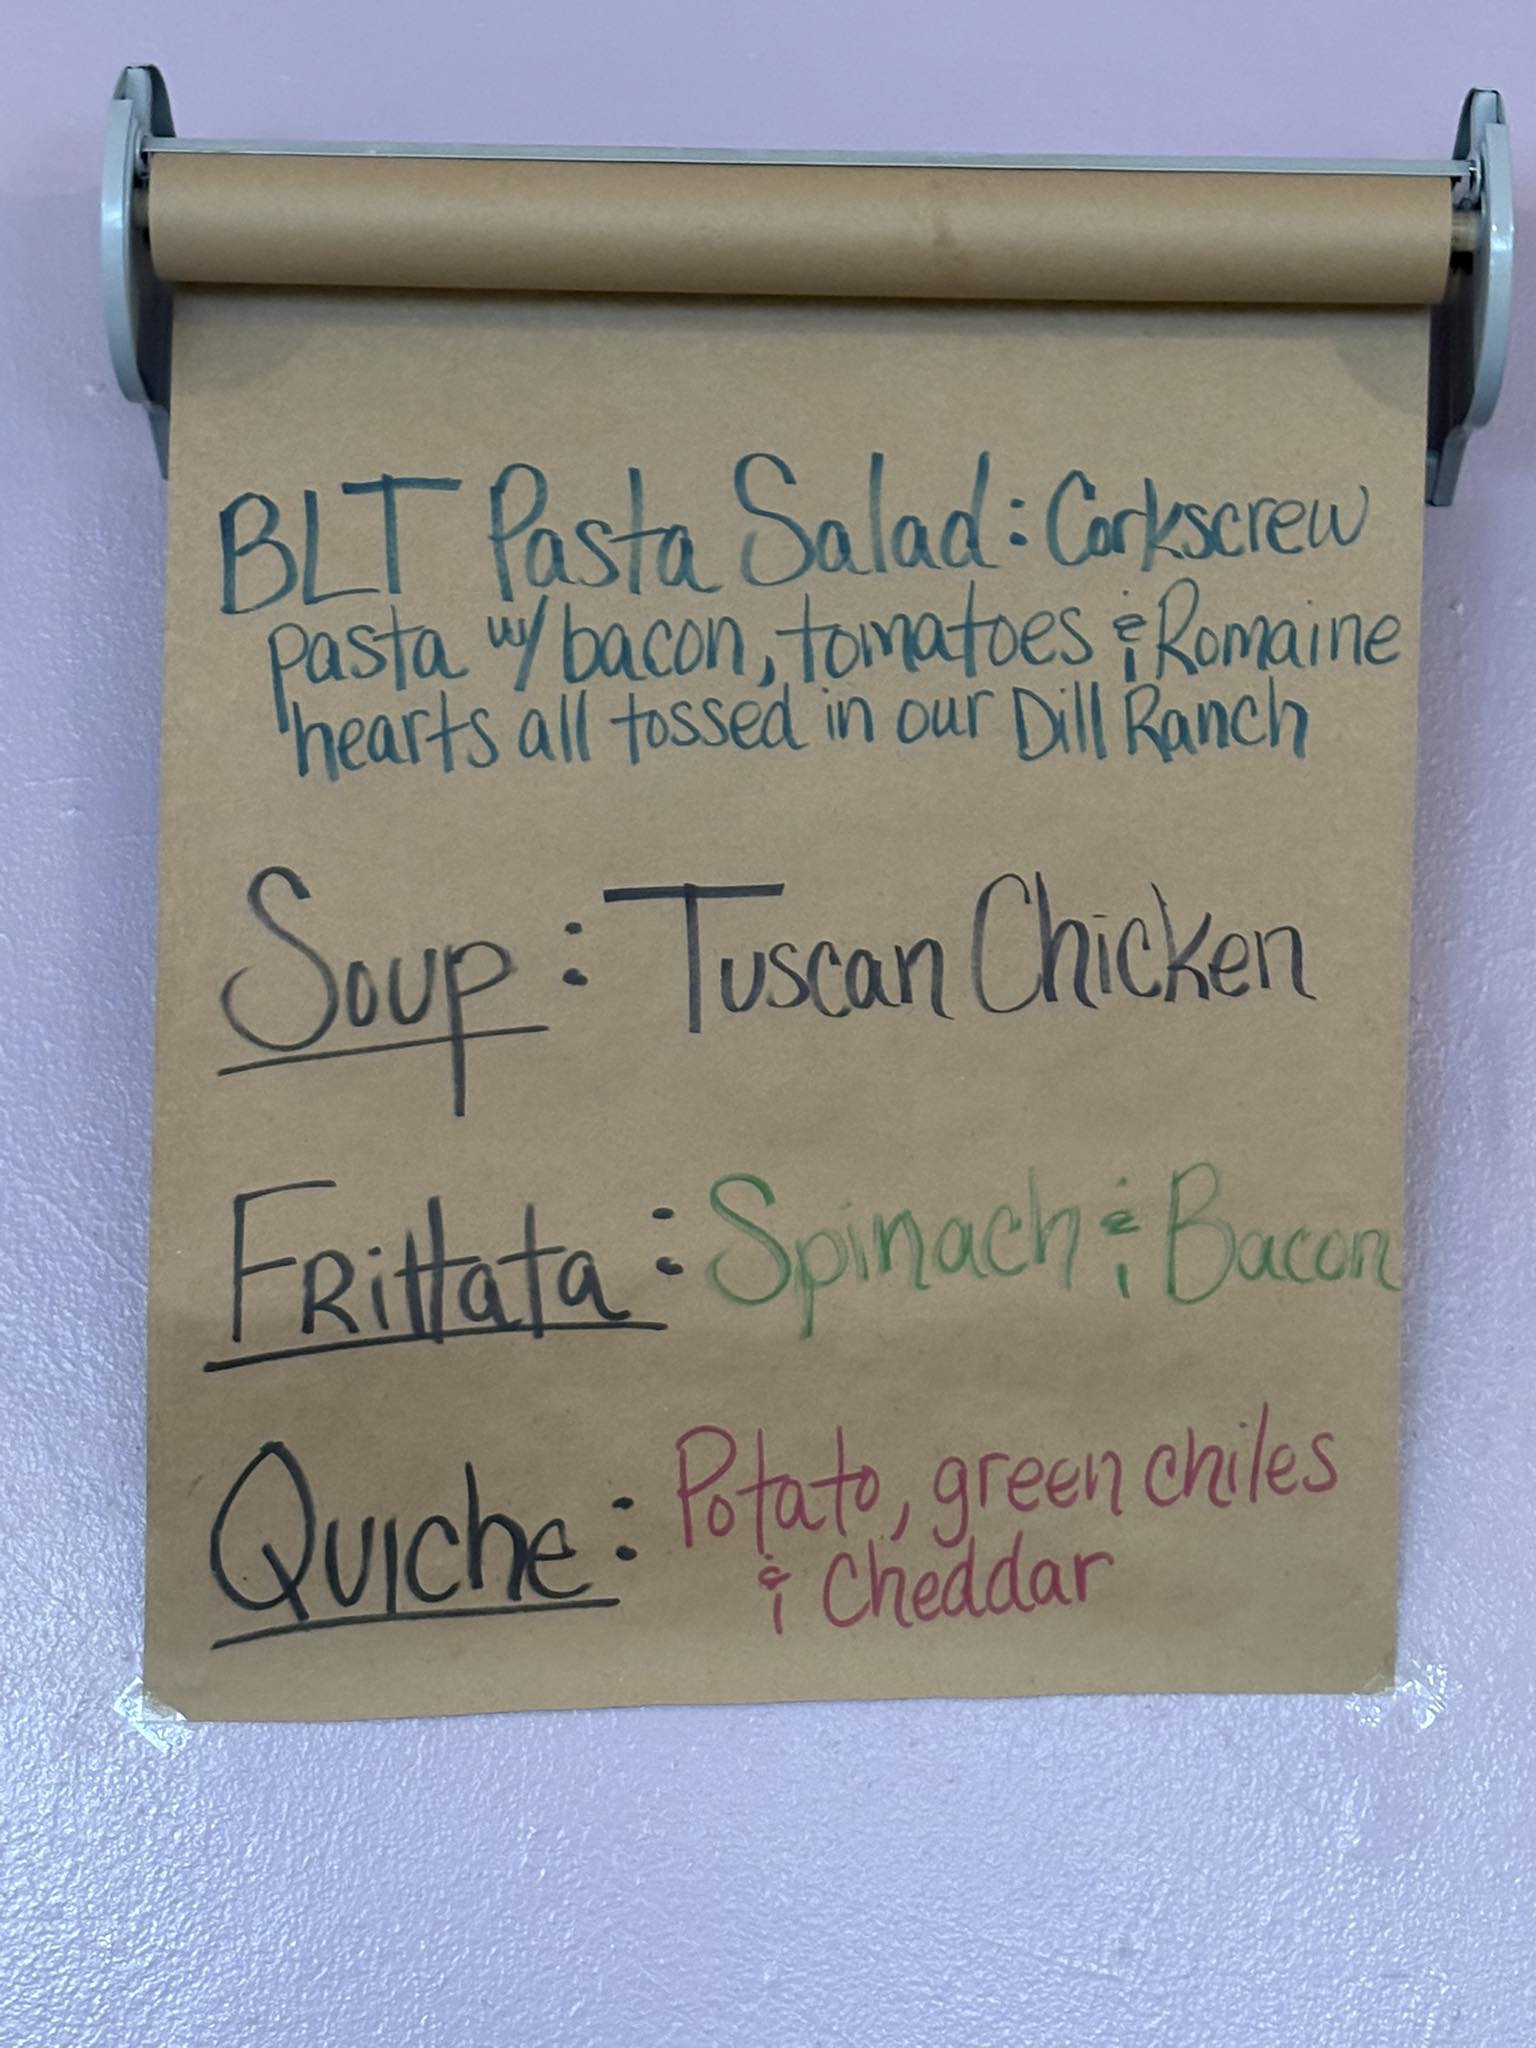 BLT Pasta Salad: Corkscrew
pasta w/ bacon, tomatoes & Romaine
hearts all tossed in our Dill Ranch
Soup: Tuscan Chicken
Frittata: Spinach & Bacon
Quiche: Potato, green chiles
& Cheddar